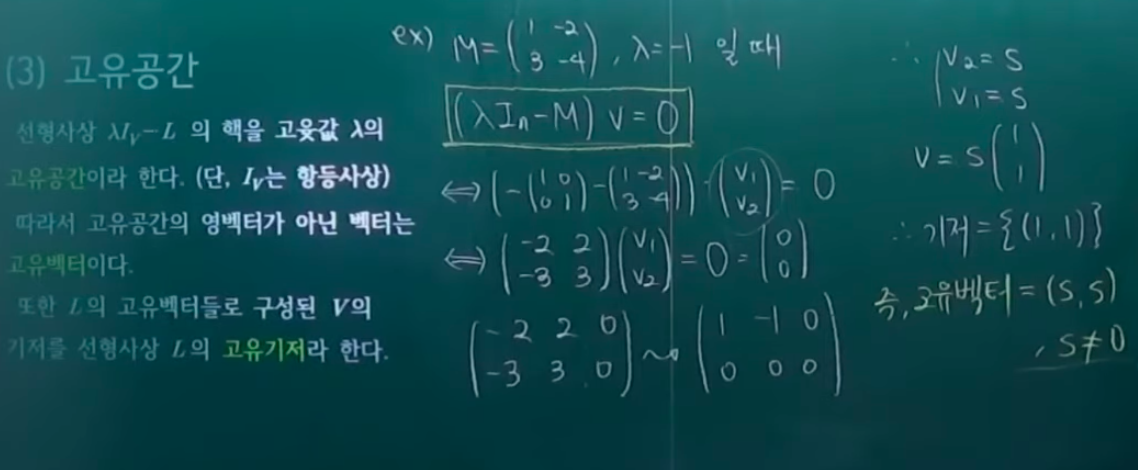 (3) 고유공간
선형사상 λI_V−L 의 핵을 고윳값 λ의
고유공간이라 한다. (단, I_V는 항등사상)
따라서 고유공간의 영벡터가 아닌 벡터는
고유벡터이다.
또한 L의 고유벡터들로 구성된 V의
기저를 선형사상 L의 고유기저라 한다.
ex) M = (1 -2 / 3 -4), λ = -1 일 때
(λI_n − M) v = 0
⟺ (-(1 0 / 0 1) - (1 -2 / 3 -4)) · (v₁ / v₂) = 0
⟺ (-2 2 / -3 3)(v₁ / v₂) = 0 = (0 / 0)
(-2 2 0 / -3 3 0) ~ (1 -1 0 / 0 0 0)
∴ v₂ = s
v₁ = s
v = s(1 / 1)
∴ 기저 = {(1,1)}
즉, 고유벡터 = (s, s)
, s ≠ 0